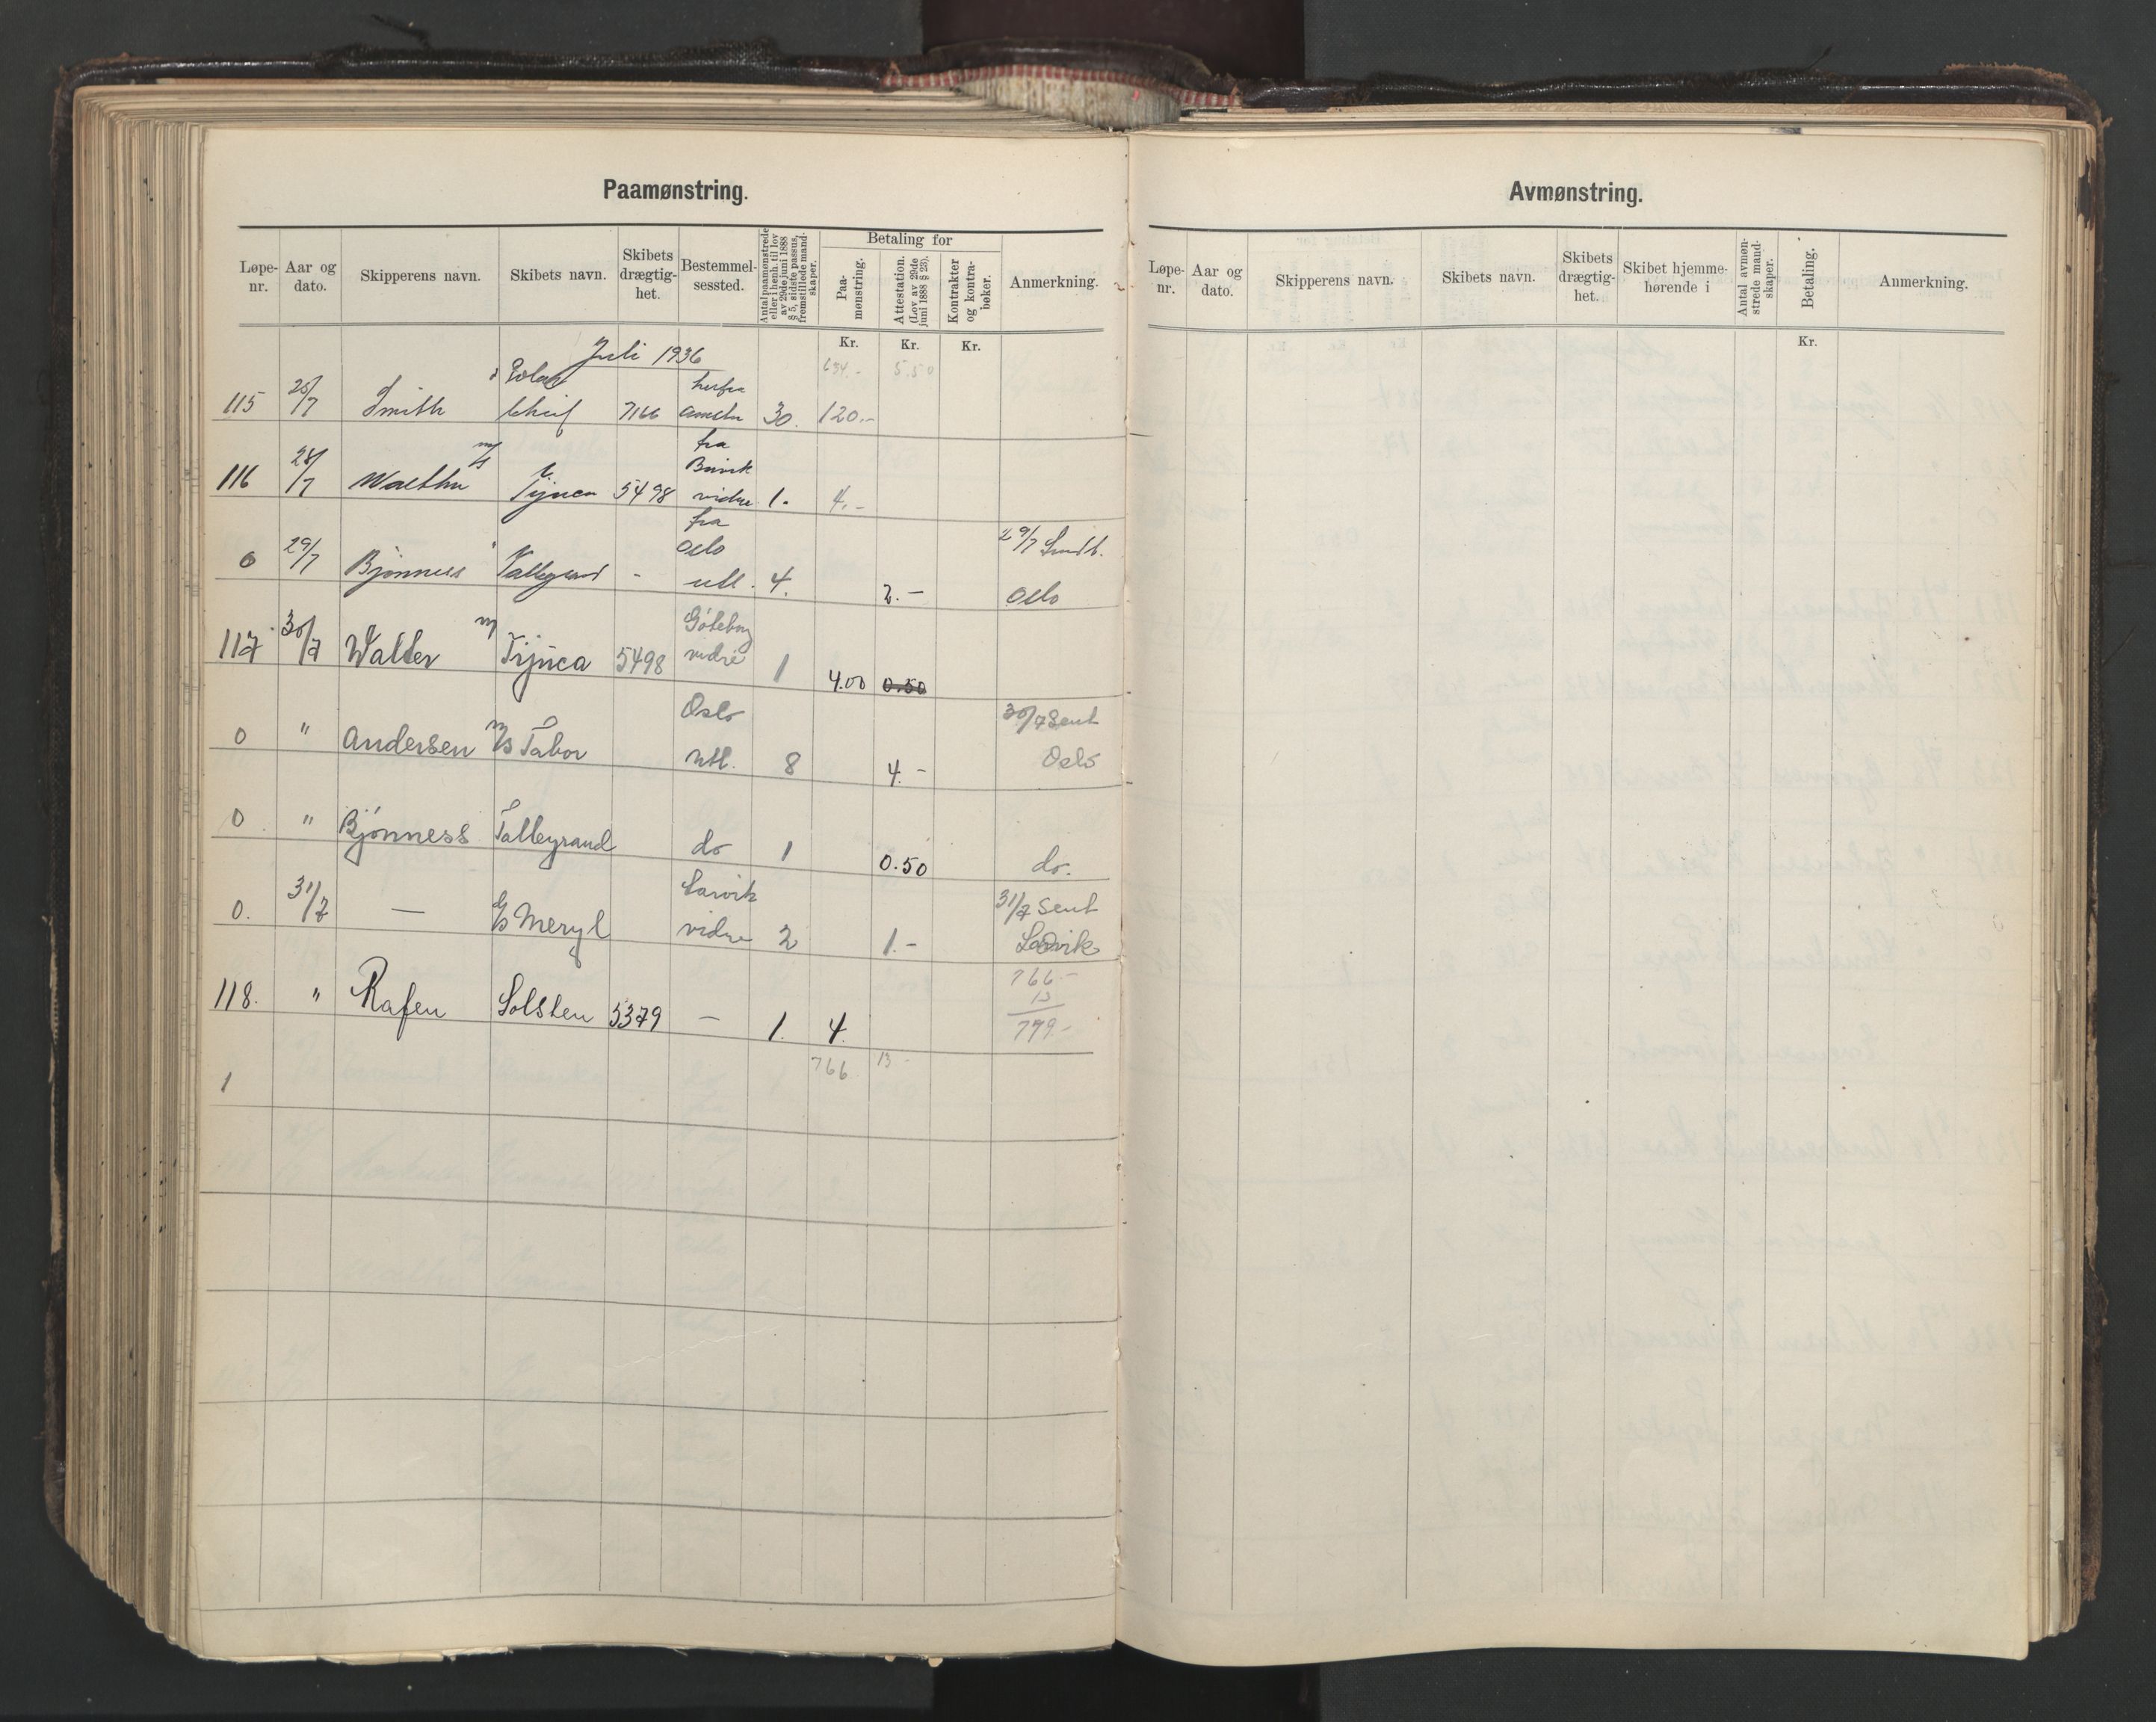 Paamønstring.
Løpe-nr. Aar og dato. Skipperens navn. Skibets navn. Skibets drægtig-het. Bestemmel-sessted. Antal paamønstrede eller i henh. til lov av 29de juni 1888 § 5, sidste passus, fremstillede mand-skaper. Betaling for Paa-mønstring. Attestation. (Lov av 29de juni 1888 § 23). Kontrakter og kontra-bøker. Anmerkning.
Kr. Kr. Kr.
Juli 1936
634.- 5.50
herfra
115 25/7 Smith Chief 7166 30. 120.-
fra
m/s
116 28/7 Walther Tijuca 5498 vidre 1. 4.-
fra
Oslo
29/7
0 29/7 Bjönness Talleyrand - utl. 4. 2.- Oslo
Göteborg
117 30/7 Walter m/ Tijuca 5498 vidre 1 4.00 0.50
Oslo 30/7 Sent
0 " Andersen m/s Tabor utl. 8 4.- Oslo
0 " Bjönness Talleyrand do 1 0.50 do.
Larvik 31/7 Sent
0. 31/7 — Meryl vidre 2 1.- Larvik
766.-
13
118. " Rafen Solsten 5379 — 1. 4. 799.-
766 13-
1
Avmønstring.
Løpe-nr. Aar og dato. Skipperens navn. Skibets navn. Skibets drægtig-het. Skibet hjemme-hørende i Antal avmøn-strede mand-skaper. Betaling. Anmerkning.
Kr.